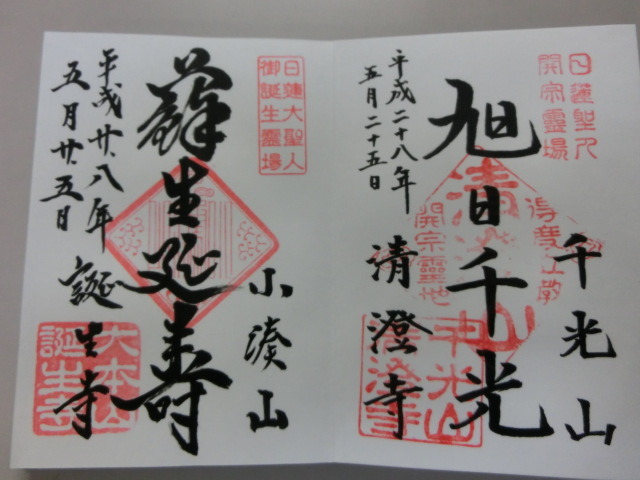 日蓮聖人
開宗靈場
千光山
旭日千光
清澄寺
平成二十八年
五月二十五日
開宗靈地
千光山
清澄寺
日蓮大聖人
御誕生靈場
小湊山
蘇生延寿
誕生寺
平成廿八年
五月廿五日
大本山
誕生寺